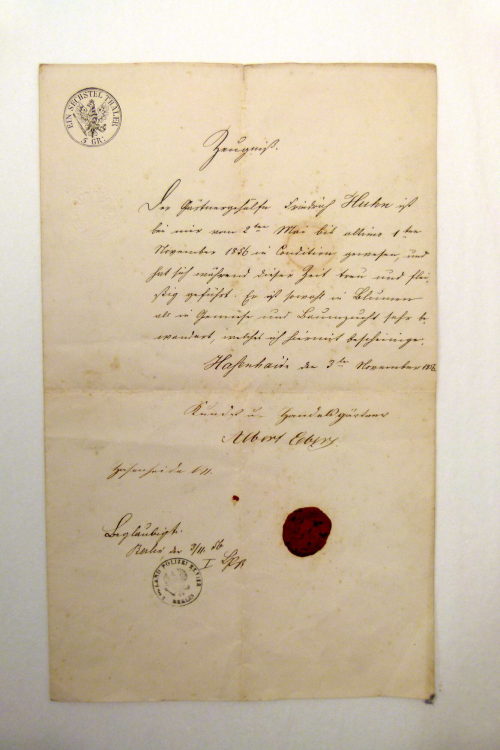 EIN SECHSTEL THALER
5 GR:
Zeugniß.
Der Gärtnergehülfe Friedrich Huhn ist
bei mir vom 2ten Mai bis ultimo 1ten
November 1856 in Condition gewesen, und
hat sich während dieser Zeit treu und flei-
ßig geführt. Er ist sowohl in Blumen
als in Gemüse und Baumzucht sehr be-
wandert, welches ich hiermit bescheinige.
Hasenhaide den 3ten November 1856.
Kunst u. Handelsgärtner
Albert Ebers
Hasenheide
Beglaubigt.
Berlin den 3/11. 56
POLIZEI REVIER
BERLIN